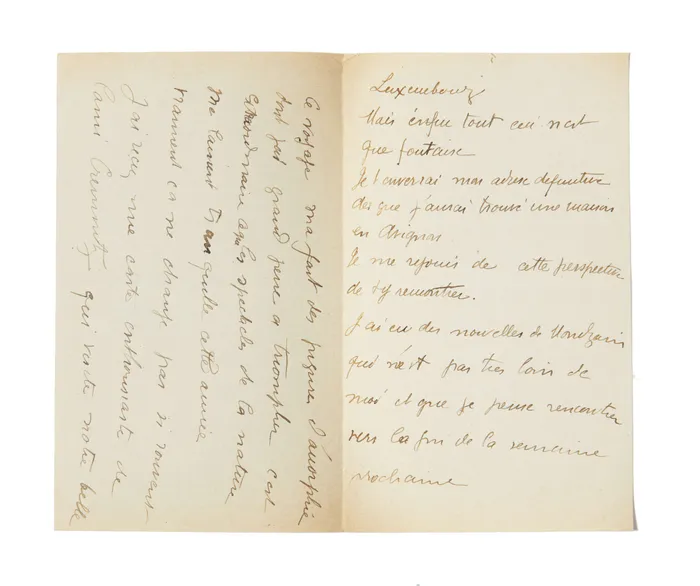 Luxembourg
Mais enfin tout ceci n'est
que foutaise
Je t'enverrai mon adresse definitive
des que j'aurai trouvé une maison
en Avignon.
Je me rejouis de cette perspective
de t'y rencontrer.
J'ai eu des nouvelles de Mondzain
qui n'est pas tres loin de
moi et que je pense rencontrer
vers la fin de la semaine
prochaine
Ce voyage m'a fait des
dont j'ai grand peine a triompher c'est
extraordinaire les spectacles de la nature
me laissent tranquille cette année
vraiment ca ne change pas si souvent
J'ai reçu une carte enthousiaste de
l'ami qui visite notre belle